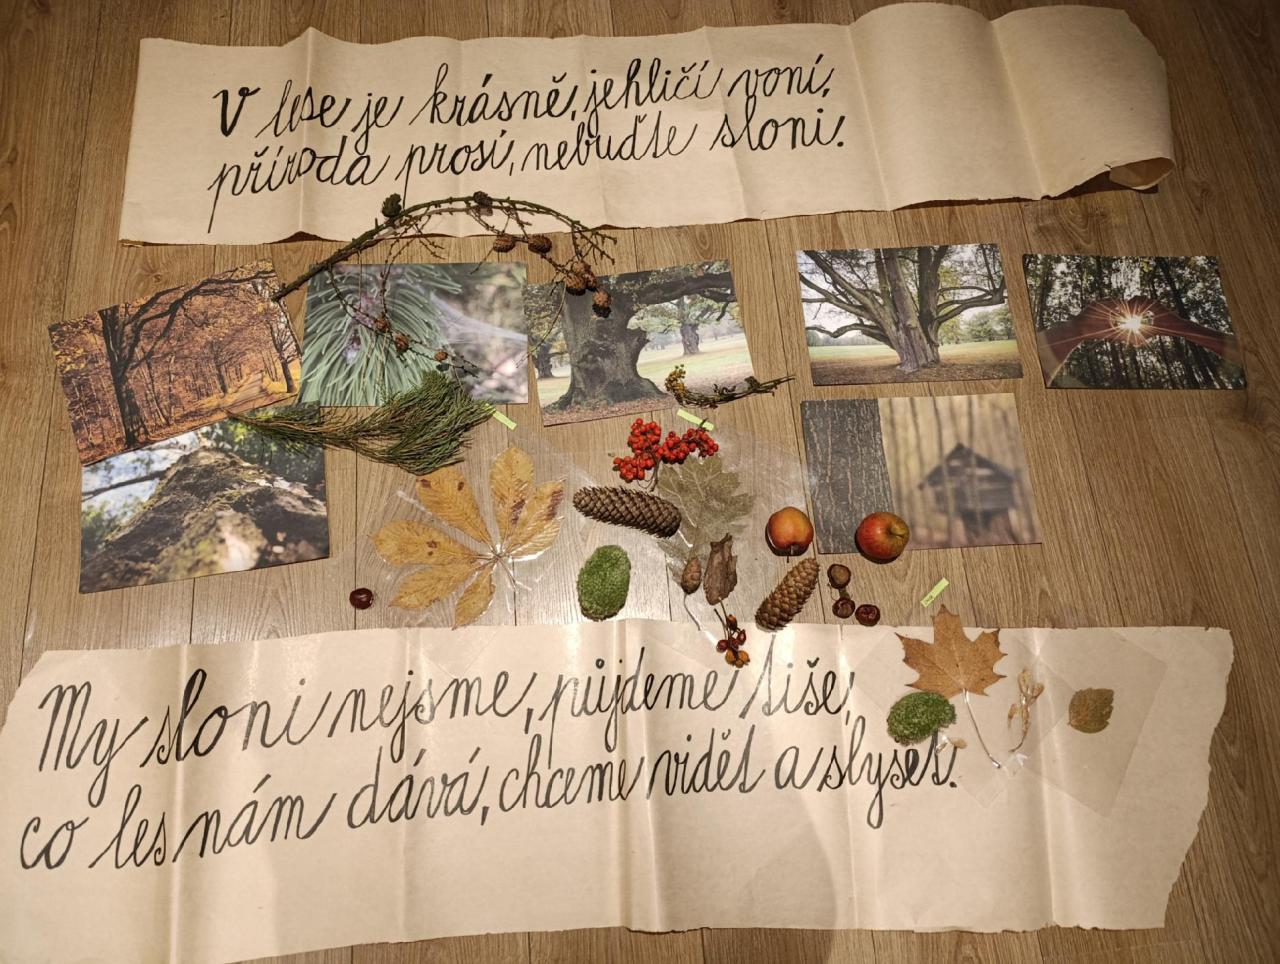 V lese je krásně, jehličí voní,
příroda prosí, nebuďte sloni!
My sloni nejsme, půjdeme tiše,
co les nám dává, chceme vidět a slyšet.